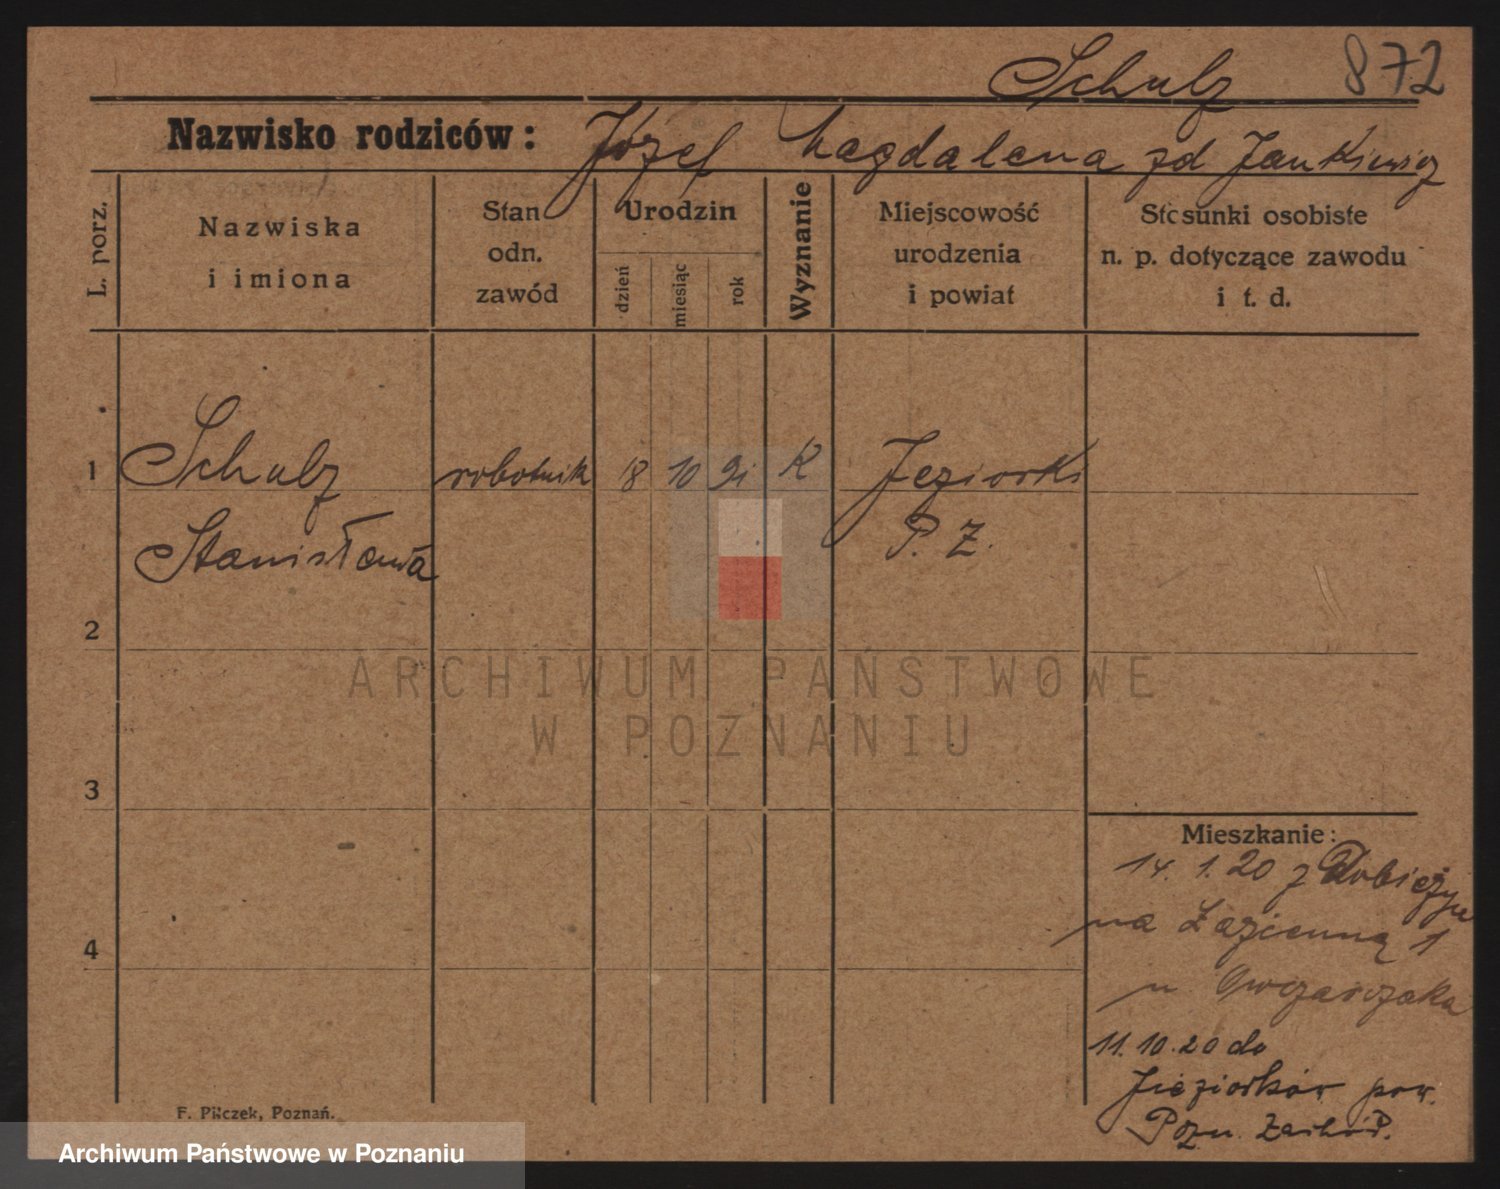 Schulz 872
Nazwisko rodziców: Józef Magdalena zd Jankiewicz
L. porz.
Nazwiska
i imiona
Stan
odn.
zawód
Urodzin
dzień
miesiąc
rok
Wyznanie
Miejscowość
urodzenia
i powiat
Stosunki osobiste
n. p. dotyczące zawodu
i t. d.
1 Schulz robotnik 18 10 91 K Jeziorki
Stanisława P. Z.
2
ARCHIWUM PAŃSTWOWE
W POZNANIU
3
Mieszkanie:
14. 1. 20 z Dobieżyn
na Łazienną 1
4
u Owczarczaka
11. 10. 20 do
Jeziorków pow.
Pozn. Zachód.
F. Pilczek, Poznań.
Archiwum Państwowe w Poznaniu